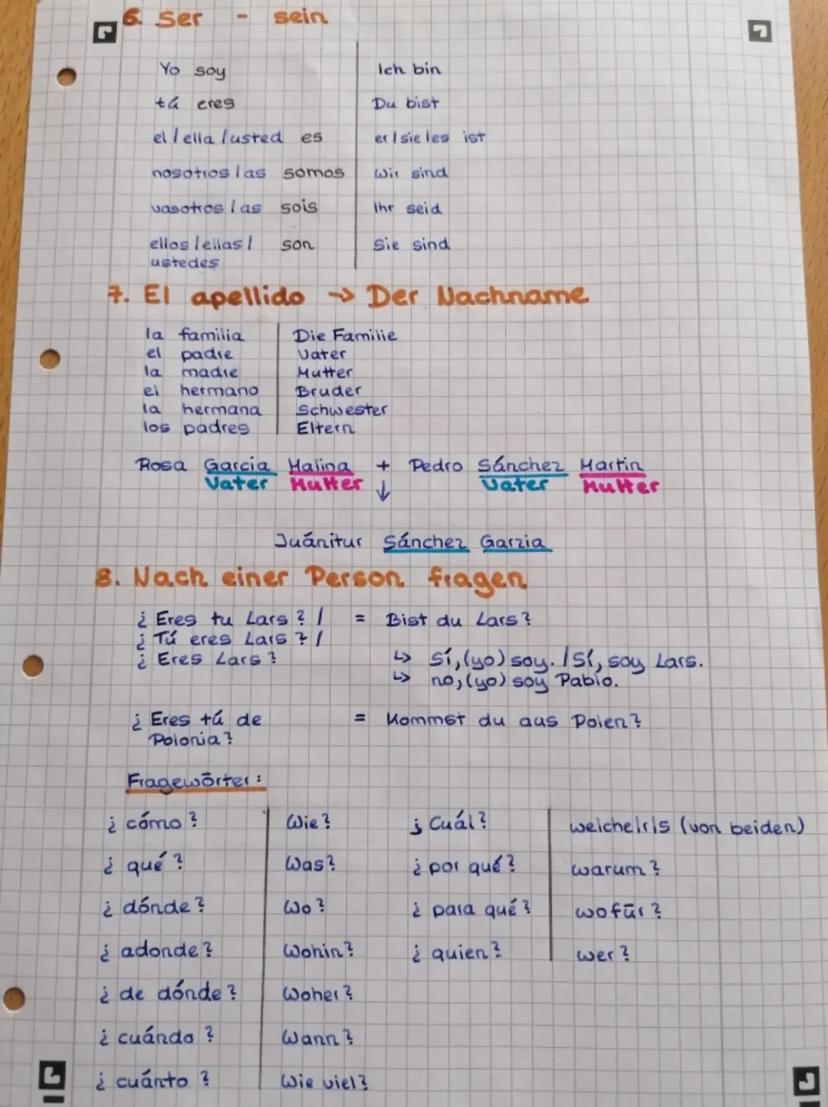 6. Ser - sein
Yo soy Ich bin
tú eres Du bist
el/ella/usted es er/sie/es ist
nosotros/as somos Wir sind
vosotros/as sois Ihr seid
ellos/ellas/ son Sie sind
ustedes
7. El apellido → Der Nachname
la familia Die Familie
el padre Vater
la madre Mutter
el hermano Bruder
la hermana Schwester
los padres Eltern
Rosa Garcia Malina + Pedro Sánchez Martin
Vater Mutter ↓ Vater Mutter
Juánitur Sánchez Garzia
8. Nach einer Person fragen
¿Eres tu Lars? / = Bist du Lars?
¿Tú eres Lars? /
¿Eres Lars? ↳ Sí, (yo) soy. / Sí, soy Lars.
↳ no, (yo) soy Pablo.
¿Eres tú de = Kommst du aus Polen?
Polonia?
Fragewörter:
¿cómo? Wie? ¿Cuál? welche/r/s (von beiden)
¿qué? Was? ¿por qué? warum?
¿dónde? Wo? ¿para qué? wofür?
¿adonde? Wohin? ¿quien? wer?
¿de dónde? Woher?
¿cuándo? Wann?
¿cuánto? Wie viel?